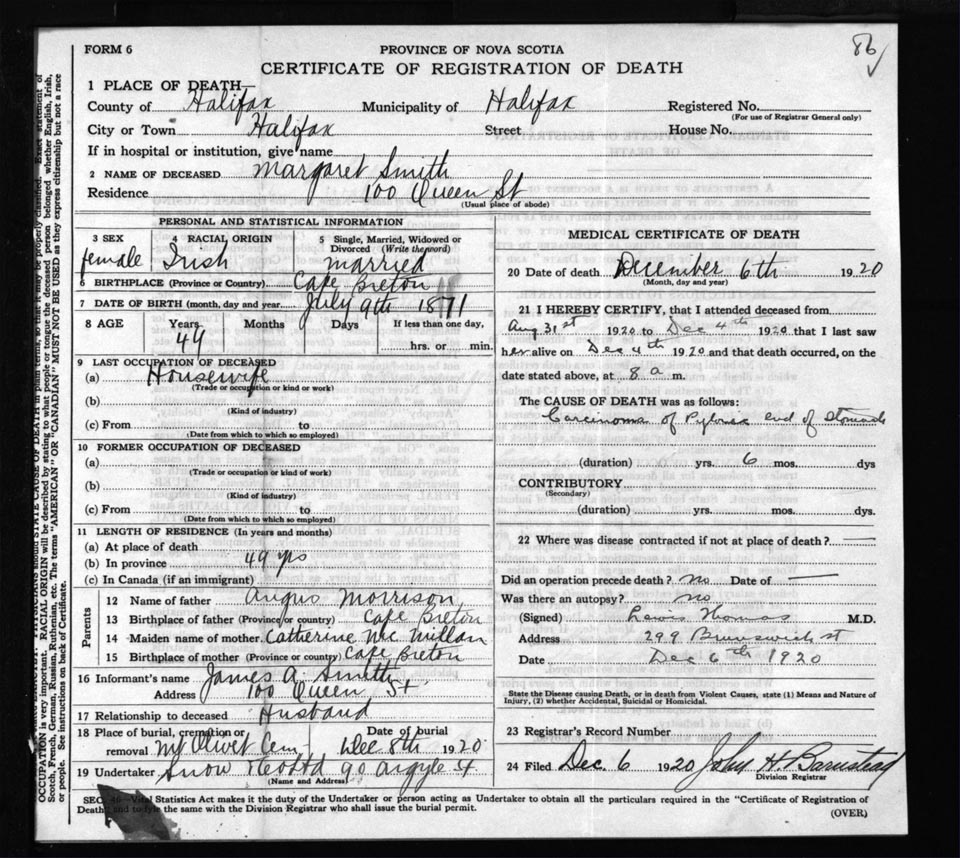 86
FORM 6
PROVINCE OF NOVA SCOTIA
CERTIFICATE OF REGISTRATION OF DEATH
1 PLACE OF DEATH—
County of Halifax Municipality of Halifax Registered No.
(For use of Registrar General only)
City or Town Halifax Street House No.
If in hospital or institution, give name
2 NAME OF DECEASED Margaret Smith
Residence 100 Queen St
(Usual place of abode)
PERSONAL AND STATISTICAL INFORMATION
3 SEX 4 RACIAL ORIGIN 5 Single, Married, Widowed or Divorced (Write the word)
female Irish married
6 BIRTHPLACE (Province or Country) Cape Breton
7 DATE OF BIRTH (month, day and year) July 9th 1871
8 AGE Years Months Days If less than one day,
49 hrs. or min.
9 LAST OCCUPATION OF DECEASED
(a) Housewife
(Trade or occupation or kind or work)
(b)
(Kind of industry)
(c) From to
(Date from which to which so employed)
10 FORMER OCCUPATION OF DECEASED
(a)
(Trade or occupation or kind of work)
(b)
(Kind of industry)
(c) From to
(Date from which to which so employed)
11 LENGTH OF RESIDENCE (In years and months)
(a) At place of death
(b) In province 49 yrs
(c) In Canada (if an immigrant)
Parents
12 Name of father Angus Morrison
13 Birthplace of father (Province or country) Cape Breton
14 Maiden name of mother Catherine Mc Millan
15 Birthplace of mother (Province or country) Cape Breton
16 Informant's name James A. Smith
Address 100 Queen St.
17 Relationship to deceased Husband
18 Place of burial, cremation or removal Mt Olivet Cem Date of burial Dec 8th 1920
19 Undertaker Snow & Co Ltd 90 Argyle St
(Name and Address)
MEDICAL CERTIFICATE OF DEATH
20 Date of death December 6th 1920
(Month, day and year)
21 I HEREBY CERTIFY, that I attended deceased from
Aug 31st 1920 to Dec 4th 1920 that I last saw
her alive on Dec 4th 1920 and that death occurred, on the
date stated above, at 8 a m.
The CAUSE OF DEATH was as follows:
Carcinoma of Pyloric end of Stomach
(duration) yrs. 6 mos. dys
CONTRIBUTORY
(Secondary)
(duration) yrs. mos. dys.
22 Where was disease contracted if not at place of death? —
Did an operation precede death? no Date of —
Was there an autopsy? no
(Signed) Lewis Thomas M.D.
Address 299 Brunswick st
Date Dec 6th 1920
State the Disease causing Death, or in death from Violent Causes, state (1) Means and Nature of
Injury, (2) whether Accidental, Suicidal or Homicidal.
23 Registrar's Record Number
24 Filed Dec. 6 1920 John H. Barnstead
Division Registrar
SEC. Vital Statistics Act makes it the duty of the Undertaker or person acting as Undertaker to obtain all the particulars required in the "Certificate of Registration of
Death" and to file the same with the Division Registrar who shall issue the burial permit.
(OVER)
PHYSICIANS should STATE CAUSE OF DEATH in plain terms, so that it may be properly classified. Exact statement of
OCCUPATION is very important. RACIAL ORIGIN will be described by stating to what people or tongue the deceased person belonged whether English, Irish,
Scotch, French, German, Russian, Ruthenian, etc. The terms "AMERICAN" OR "CANADIAN" MUST NOT BE USED as they express citizenship but not a race
or people. See instructions on back of Certificate.